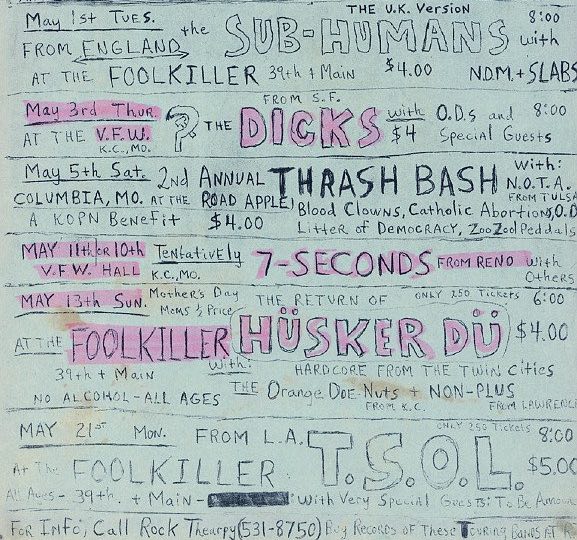 THE U.K. Version
May 1st Tues. the SUB-HUMANS 8:00
FROM ENGLAND with
AT THE FOOLKILLER 39th + Main $4.00 N.D.M. + SLABS
FROM S.F.
May 3rd Thur. ? THE DICKS with O.D.s and 8:00
AT THE V.F.W. $4 Special Guests
K.C., MO.
May 5th Sat. 2nd ANNUAL THRASH BASH With:
N.O.T.A.
FROM TULSA
COLUMBIA, MO. AT THE ROAD APPLE! Blood Clowns, Catholic Abortions, O.D
A KOPN Benefit $4.00 Litter of DEMOCRACY, ZooZoolPeddals
MAY 11th or 10th Tentatively 7-SECONDS FROM RENO with
V.F.W. HALL K.C., MO. Others
MAY 13th Sun. Mother's Day THE RETURN OF ONLY 250 Tickets 6:00
Moms ½ Price
AT THE FOOLKILLER HÜSKER DÜ $4.00
39th + Main with: HARDCORE FROM THE TWIN Cities
NO ALCOHOL - ALL AGES THE Orange Doe-Nuts + NON-PLUS
FROM K.C. FROM LAWRENC
ONLY 250 Tickets
MAY 21st Mon. FROM L.A. T.S.O.L. 8:00
At The FOOLKILLER $5.00
All Ages - 39th. + Main - With Very Special Guests! To Be Announ
FOR Info, Call Rock Thearpy (531-8750) Buy Records of These Touring Bands AT R